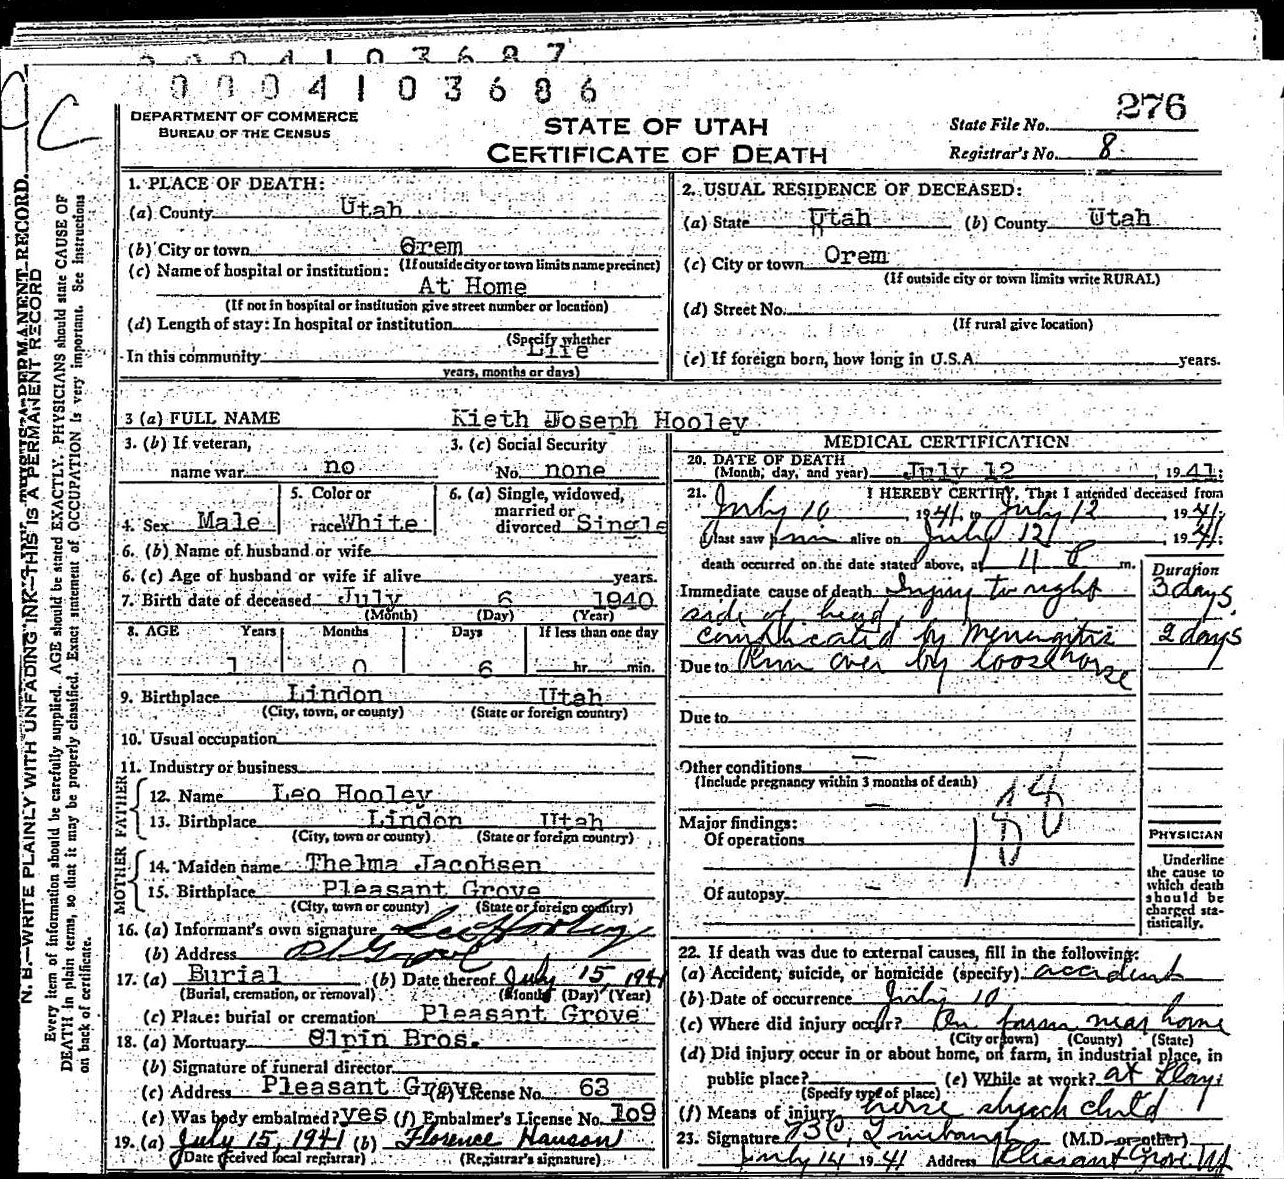 0 0 0 4 1 0 3 6 8 7
0 0 0 4 1 0 3 6 8 6
C
DEPARTMENT OF COMMERCE
BUREAU OF THE CENSUS
STATE OF UTAH
CERTIFICATE OF DEATH
State File No. 276
Registrar's No. 8
N. B.—WRITE PLAINLY WITH UNFADING INK—THIS IS A PERMANENT RECORD
Every item of information should be carefully supplied. AGE should be stated EXACTLY. PHYSICIANS should state CAUSE OF
DEATH in plain terms, so that it may be properly classified. Exact statement of OCCUPATION is very important. See instructions
on back of certificate.
1. PLACE OF DEATH:
(a) County Utah
(b) City or town Orem
(If outside city or town limits name precinct)
(c) Name of hospital or institution:
At Home
(If not in hospital or institution give street number or location)
(d) Length of stay: In hospital or institution
(Specify whether
In this community Life
years, months or days)
2. USUAL RESIDENCE OF DECEASED:
(a) State Utah (b) County Utah
(c) City or town Orem
(If outside city or town limits write RURAL)
(d) Street No.
(If rural give location)
(e) If foreign born, how long in U.S.A. years.
3 (a) FULL NAME Kieth Joseph Hooley
3. (b) If veteran,
name war no
3. (c) Social Security
No. none
4. Sex Male
5. Color or
race White
6. (a) Single, widowed,
married or
divorced Single
6. (b) Name of husband or wife
6. (c) Age of husband or wife if alive years.
7. Birth date of deceased July 6 1940
(Month) (Day) (Year)
8. AGE Years Months Days If less than one day
1 0 6 hr. min.
9. Birthplace Lindon Utah
(City, town, or county) (State or foreign country)
10. Usual occupation
11. Industry or business
FATHER
12. Name Leo Hooley
13. Birthplace Lindon Utah
(City, town or county) (State or foreign country)
MOTHER
14. Maiden name Thelma Jacobsen
15. Birthplace Pleasant Grove
(City, town or county) (State or foreign country)
16. (a) Informant's own signature Leo Hooley
(b) Address Pl Grove
17. (a) Burial (b) Date thereof July 15, 1941
(Burial, cremation, or removal) (Month) (Day) (Year)
(c) Place: burial or cremation Pleasant Grove
18. (a) Mortuary Olpin Bros.
(b) Signature of funeral director
(c) Address Pleasant Grove (d) License No. 63
(e) Was body embalmed? yes (f) Embalmer's License No. 109
19. (a) July 15, 1941 (b) Florence Hanson
(Date received local registrar) (Registrar's signature)
MEDICAL CERTIFICATION
20. DATE OF DEATH
(Month, day, and year) July 12, 1941:
21. I HEREBY CERTIFY, That I attended deceased from
July 10 1941, to July 12 1941;
I last saw him alive on July 12, 1941;
death occurred on the date stated above, at 11 P m.
Duration
Immediate cause of death Injury to right 3 days
side of head,
complicated by Meningitis 2 days
Due to Run over by loose horse
Due to
Other conditions —
(Include pregnancy within 3 months of death)
—
Major findings:
Of operations —
Of autopsy —
PHYSICIAN
Underline
the cause to
which death
should be
charged sta-
tistically.
22. If death was due to external causes, fill in the following:
(a) Accident, suicide, or homicide (specify) accident
(b) Date of occurrence July 10
(c) Where did injury occur? On farm near home
(City or town) (County) (State)
(d) Did injury occur in or about home, on farm, in industrial place, in
public place? (e) While at work? at play
(Specify type of place)
(f) Means of injury horse struck child
23. Signature (M.D. or other)
July 14 1941 Address Pleasant Grove Ut